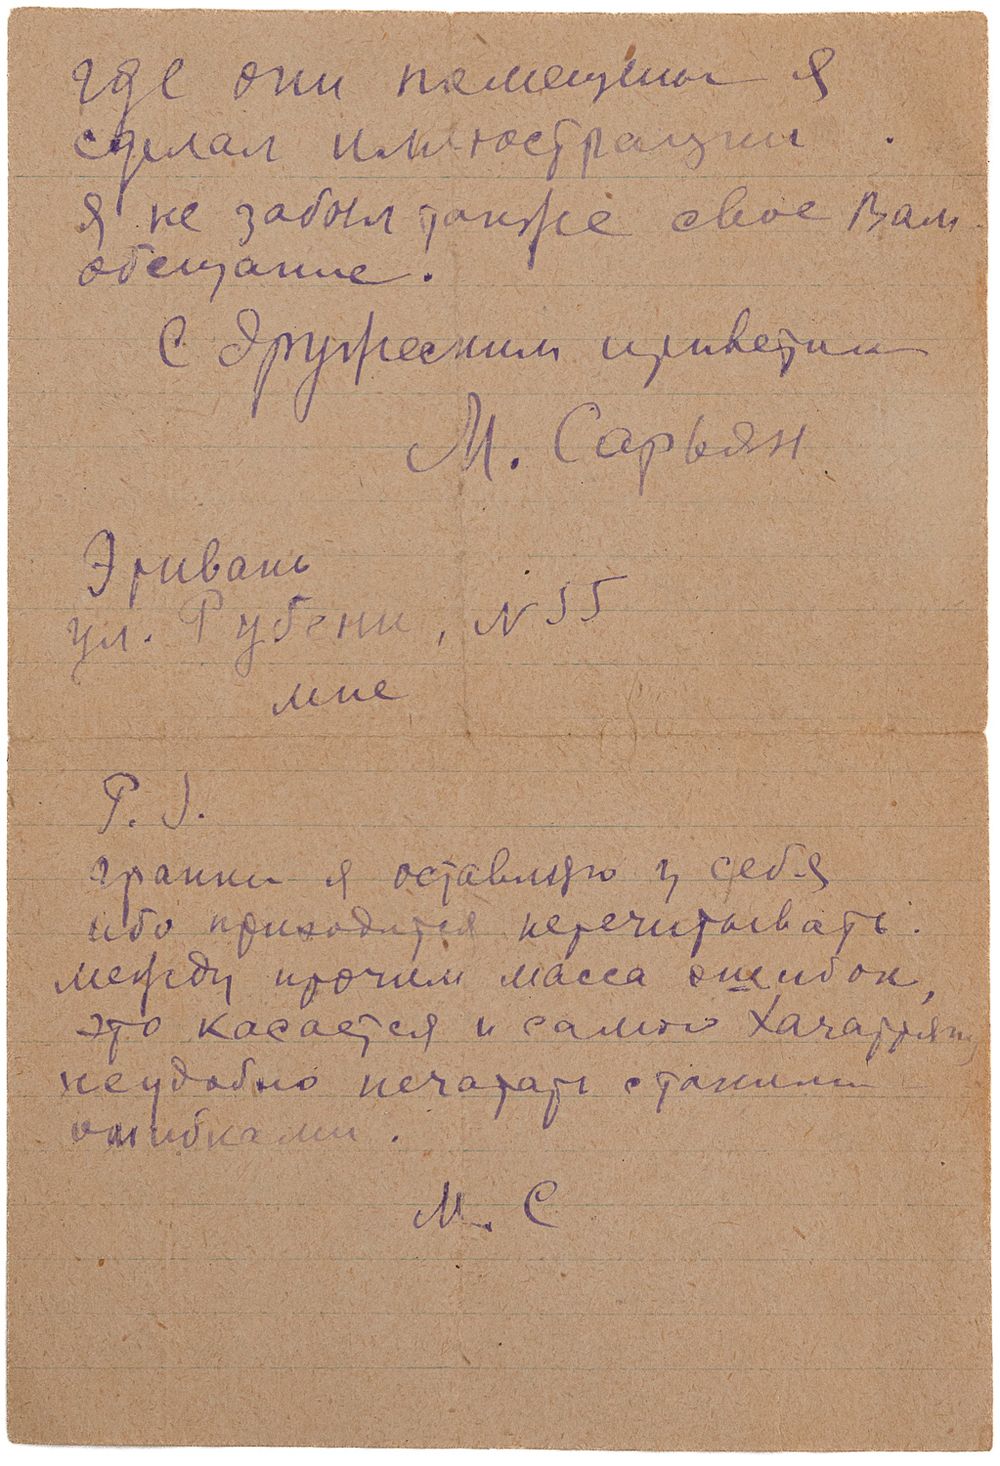 где они помещены я
сделал иллюстрации.
Я не забыл также свое Вам
обещание.
С дружеским приветом
М. Сарьян
Эривань
ул. Рубени, N 55
мне
P. S.
гранки я оставляю у себя
ибо приходится перечитывать.
между прочим масса ошибок,
это касается и самого Хачатряну
неудобно печатать с такими
ошибками.
М. С